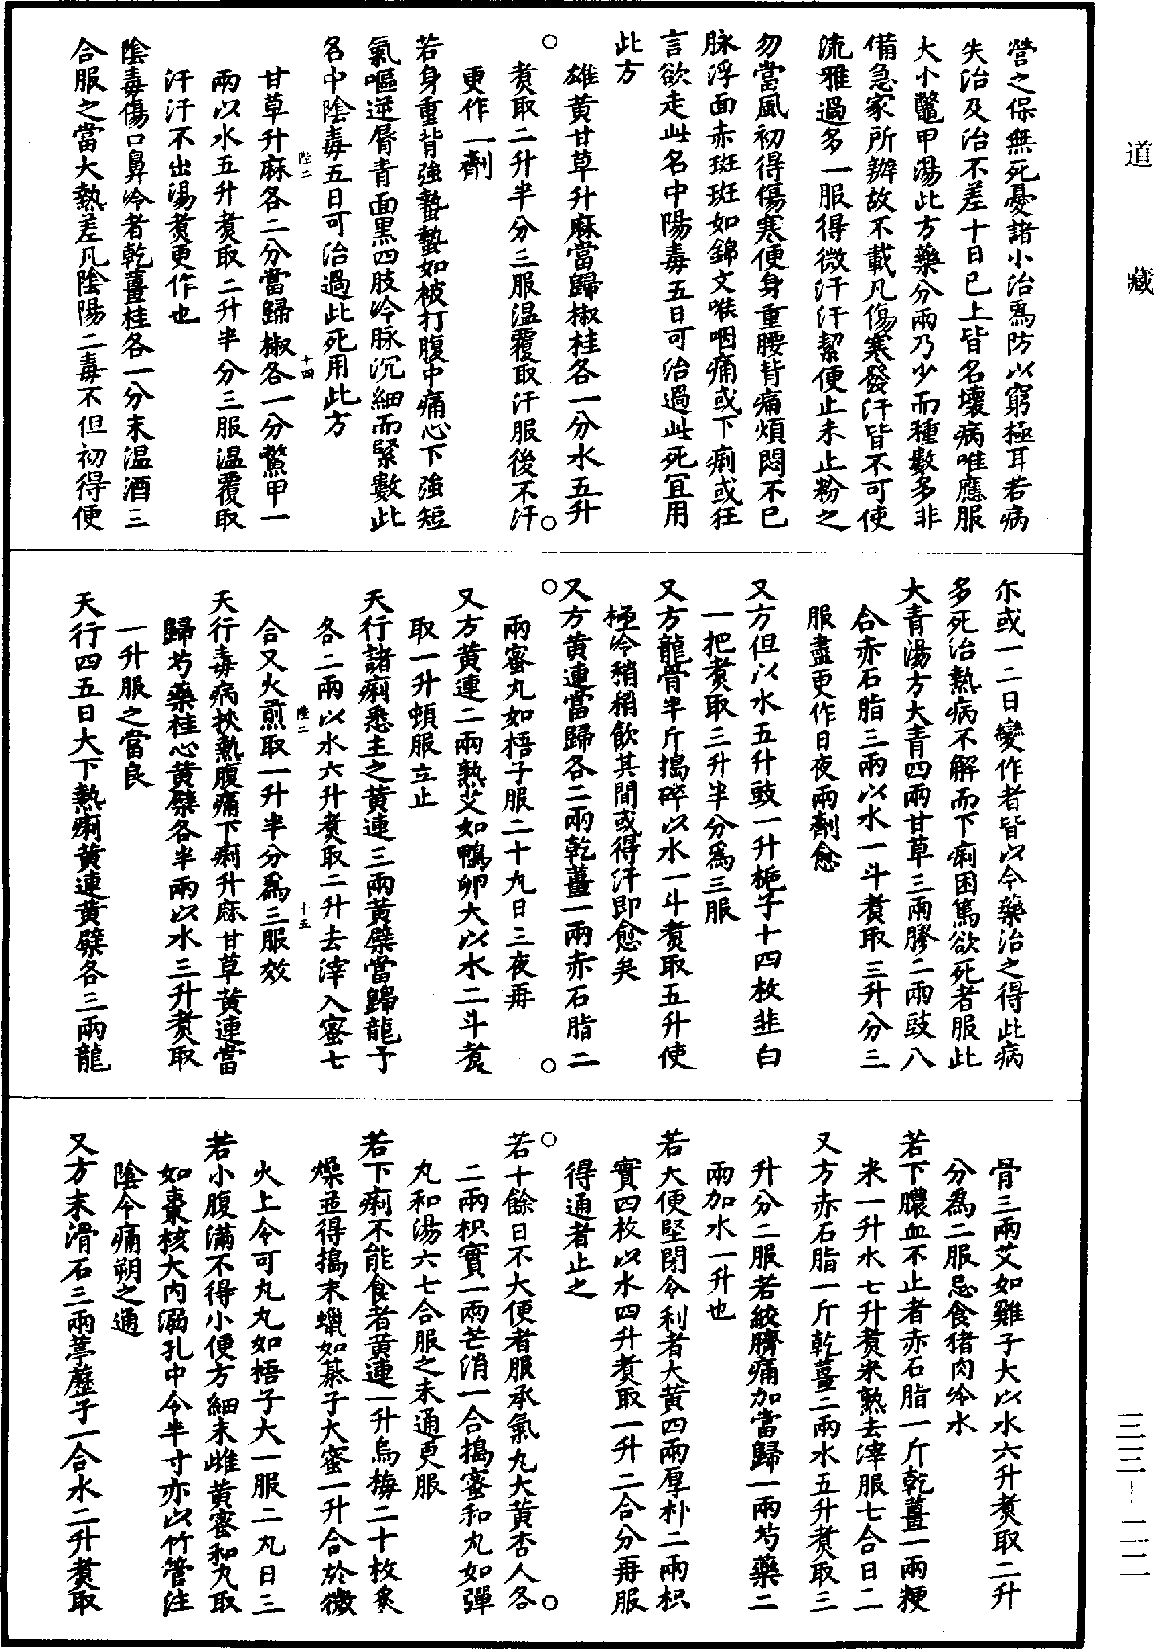 道藏
營之保無死憂諸小治爲防以窮極耳若病
失治及治不差十日已上皆名壞病唯應服
大小鼈甲湯此方藥分兩乃少而種數多非
備急家所辦故不載凡傷寒發汗皆不可使
流離過多一服得微汗汗絜便止未止粉之
勿當風初得傷寒便身重腰背痛煩悶不已
脉浮面赤斑斑如錦文喉咽痛或下痢或狂
言欲走此名中陽毒五日可治過此死宜用
此方
雄黃甘草升麻當歸椒桂各一分水五升
煮取二升半分三服温覆取汗服後不汗
更作一劑
若身重背強蟄蟄如被打腹中痛心下強短
氣嘔逆脣青面黑四肢冷脉沉細而緊數此
名中陰毒五日可治過此死用此方
陞二
十四
甘草升麻各二分當歸椒各一分鱉甲一
兩以水五升煮取二升半分三服温覆取
汗汗不出湯煮更作也
陰毒傷口鼻冷者乾薑桂各一分末温酒三
合服之當大熱差凡陰陽二毒不但初得便
尓或一二日變作者皆以今藥治之得此病
多死治熱病不解而下痢困篤欲死者服此
大青湯方大青四兩甘草三兩膠二兩豉八
合赤石脂三兩以水一斗煮取三升分三
服盡更作日夜兩劑愈
又方但以水五升豉一升梔子十四枚韭白
一把煮取三升半分爲三服
又方龍骨半斤搗碎以水一斗煮取五升使
極冷稍稍飲其間或得汗即愈矣
又方黃連當歸各二兩乾薑一兩赤石脂二
兩蜜丸如梧子服二十九日三夜再
又方黃連二兩熟艾如鴨卵大以水二斗煮
取一升頓服立止
天行諸痢悉主之黃連三兩黃檗當歸龍予
各二兩以水六升煮取二升去滓入蜜七
陞二
十五
合又火煎取一升半分爲三服效
天行毒病挾熱腹痛下痢升麻甘草黃連當
歸芍藥桂心黃檗各半兩以水三升煮取
一升服之當良
天行四五日大下熱痢黃連黃檗各三兩龍
骨三兩艾如雞子大以水六升煮取二升
分爲二服忌食猪肉冷水
若下膿血不止者赤石脂一斤乾薑一兩粳
米一升水七升煮米熟去滓服七合日二
又方赤石脂一斤乾薑二兩水五升煮取三
升分二服若絞臍痛加當歸一兩芍藥二
兩加水一升也
若大便堅閉令利者大黃四兩厚朴二兩枳
實四枚以水四升煮取一升二合分再服
得通者止之
若十餘日不大便者服承氣丸大黃杏人各
二兩枳實一兩芒消一合搗蜜和丸如彈
丸和湯六七合服之未通更服
若下痢不能食者黃連一升烏梅二十枚炙
燥並得搗末蠟如碁子大蜜一升合於微
火上令可丸丸如梧子大一服二丸日三
若小腹滿不得小便方細末雌黃蜜和丸取
如棗核大內溺孔中令半寸亦以竹管注
陰令痛朔之通
又方末滑石三兩葶藶子一合水二升煮取
三三-二二